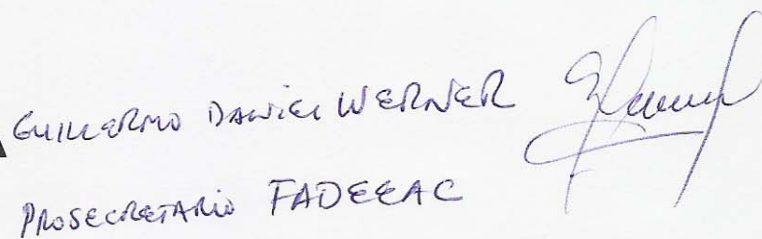 GUILLERMO DANIEL WERNER
PROSECRETARIO FADEEAC